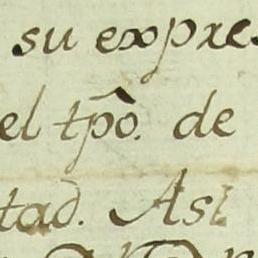 su expres
el tp̂o. de
tad. Asi